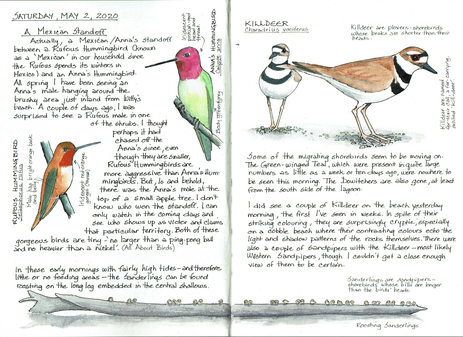 SATURDAY, MAY 2, 2020
A Mexican Standoff
Actually, a Mexican/Anna's standoff
between a Rufous Hummingbird (known
as a 'Mexican' in our household since
the Rufous spends its winters in
Mexico) and an Anna's Hummingbird.
All spring I have been seeing an
Anna's male hanging around the
brushy area just inland from
beach. A couple of days ago, I was
surprised to see a Rufous male in one
of the shrubs. I thought
perhaps it had
chased off the
Anna's since, even
though they are smaller,
Rufous Hummingbirds are
more aggressive than Anna's Hum-
mingbirds. But, lo and behold,
there was the Anna's male at the
top of a small apple tree. I don't
know who won the standoff. I can
only watch in the coming days and
see who shows up as victor and claims
that particular territory. Both of these
gorgeous birds are tiny - 'no larger than a ping-pong ball
and no heavier than a nickel'. (All About Birds)
In these early mornings with fairly high tides - and therefore
little or no feeding areas - the Sanderlings can be found
roosting on the long log embedded in the central shallows.
ANNA'S HUMMINGBIRD
RUFOUS HUMMINGBIRD
Male has bright orange back
and belly
KILLDEER
Charadrius vociferus
Killdeer are plovers - shorebirds
whose beaks are shorter than their
heads.
Some of the migrating shorebirds seem to be moving on.
The Green-winged Teal, which were present in quite large
numbers as little as a week or ten days ago, were nowhere to
be seen this morning. The Dowitchers are also gone, at least
from the south side of the lagoon.
I did see a couple of Killdeer on the beach yesterday
morning, the first I've seen in weeks. In spite of their
striking colouring, they are surprisingly cryptic, especially
on a cobble beach where their contrasting colours echo the
light and shadow patterns of the rocks themselves. There were
also a couple of sandpipers with the Killdeer - most likely
Western Sandpipers, though I couldn't get a close enough
view of them to be certain.
Sanderlings are sandpipers -
shorebirds whose bills are longer
than the birds' heads.
Roosting Sanderlings